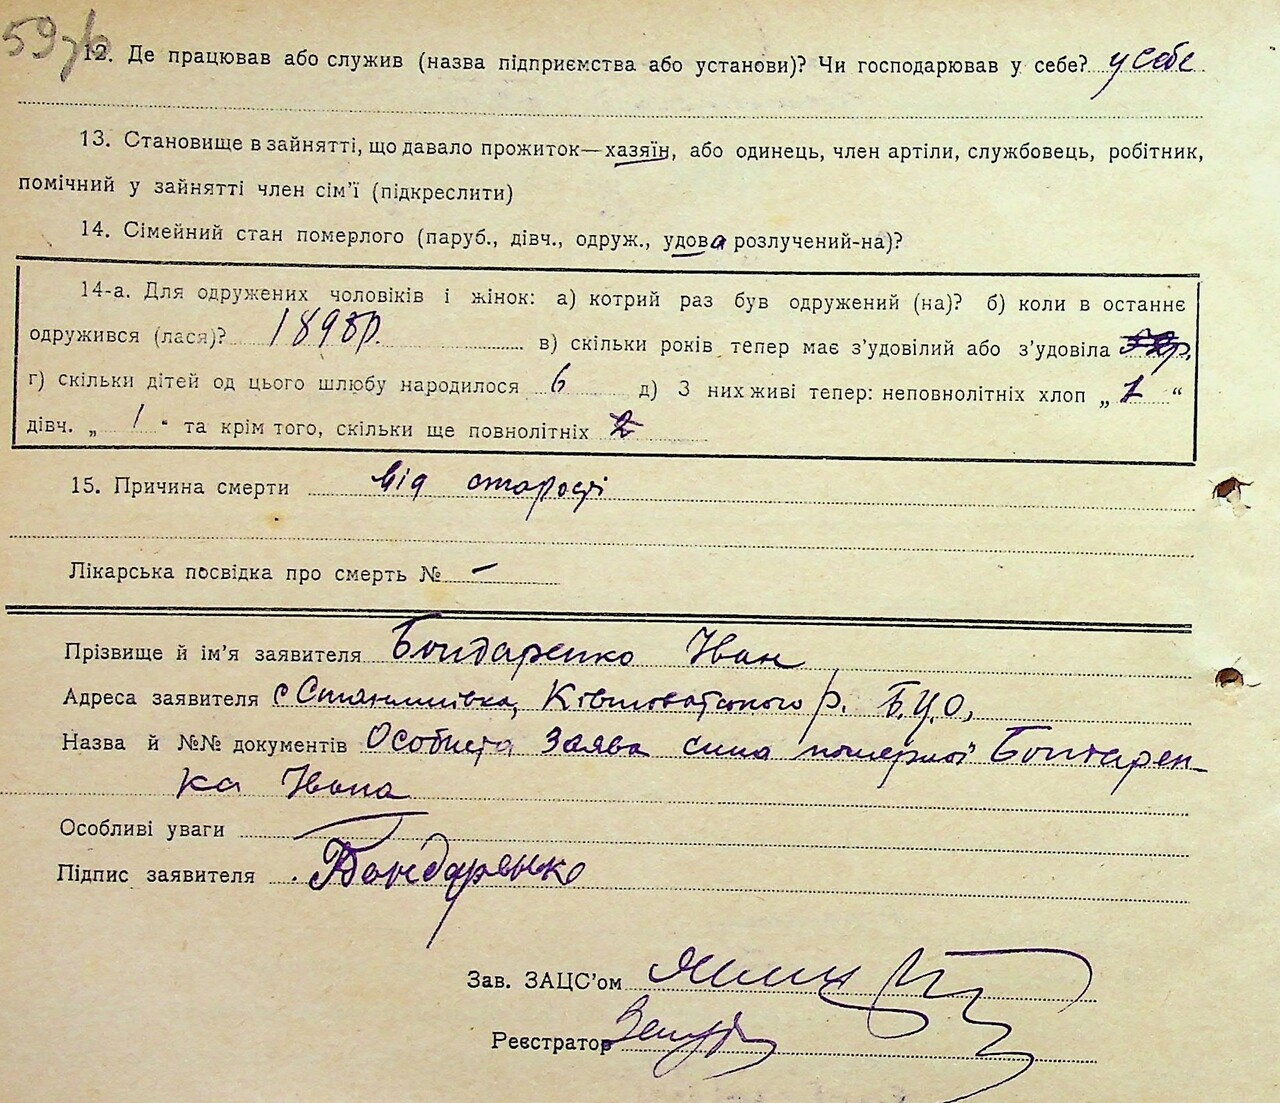 59зв
12. Де працював або служив (назва підприємства або установи)? Чи господарював у себе? у себе
13. Становище в зайнятті, що давало прожиток—хазяїн, або одинець, член артіли, службовець, робітник,
помічний у зайнятті член сім'ї (підкреслити)
14. Сімейний стан померлого (паруб., дівч., одруж., удова розлучений-на)?
14-а. Для одружених чоловіків і жінок: а) котрий раз був одружений (на)? б) коли в останнє
одружився (лася)? 1898р. в) скільки років тепер має з'удовілий або з'удовіла
г) скільки дітей од цього шлюбу народилося 6 д) З них живі тепер: неповнолітніх хлоп „ 1 “
дівч. „ 1 “ та крім того, скільки ще повнолітніх 2
15. Причина смерти від старості
Лікарська посвідка про смерть № —
Прізвище й ім'я заявителя Бондаренко Іван
Адреса заявителя с Станишівка, Ківшоватського р. Б.Ц.О,
Назва й №№ документів Особиста заява сина померлої Бонтарен-
ка Івана
Особливі уваги
Підпис заявителя Бондаренко
Зав. ЗАЦС'ом
Реєстратор